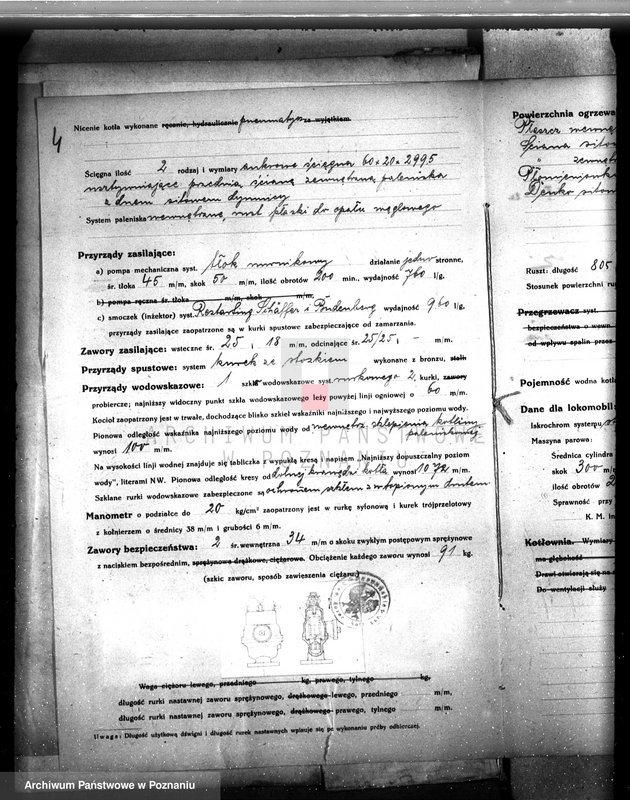 4
Nicenie kotła wykonane ręcznie, hydraulicznie pneumatycz za wyjątkiem
Ścięgna ilość 2 rodzaj i wymiary ankrowe ścięgna 60 x 20 x 2995
usztywniające przednią ścianę zewnętrzną paleniska
z dnem sitowem dymnicy
System paleniska wewnętrzne, ruszt płaski do opału węglowego
Przyrządy zasilające:
a) pompa mechaniczna syst. tłok nurnikowy działanie jednostronne,
śr. tłoka 45 m/m, skok 50 m/m, ilość obrotów 200 min., wydajność 760 l/g.
b) pompa ręczna śr. tłoka m/m, skok m/m.
c) smoczek (inżektor) syst. Restarting Schäffer i Budenberg wydajność 960 l/g.
przyrządy zasilające zaopatrzone są w kurki spustowe zabezpieczające od zamarzania.
Zawory zasilające: wsteczne śr. 25, 18 m/m, odcinające śr. 25/25, - m/m.
Przyrządy spustowe: system kurek ze stożkiem wykonane z bronzu, stali
Przyrządy wodowskazowe: 1 szkło wodowskazowe syst. nurkowego 2, kurki, zawory
probiercze; najniższy widoczny punkt szkła wodowskazowego leży powyżej linji ogniowej o 60 m/m.
Kocioł zaopatrzony jest w trwałe, dochodzące blisko szkieł wskaźniki najniższego i najwyższego poziomu wody.
Pionowa odległość wskaźnika najniższego poziomu wody od wewnętrz. sklepienia kotliny
paleniskowej
wynosi 100 m/m.
Na wysokości linji wodnej znajduje się tabliczka z wypukłą kresą i napisem „Najniższy dopuszczalny poziom
wody", literami NW. Pionowa odległość kresy od dolnej krawędzi kotła wynosi 1072 m/m.
Szklane rurki wodowskazowe zabezpieczone są ochronnem szkłem z wtopionym drutem
Manometr o podziałce do 20 kg/cm² zaopatrzony jest w rurkę syfonową i kurek trójprzelotowy
z kołnierzem o średnicy 38 m/m i grubości 6 m/m.
Zawory bezpieczeństwa: 2 śr. wewnętrzna 34 m/m o skoku zwykłym postępowym sprężynowe
z naciskiem bezpośrednim, sprężynowe drążkowe, ciężarowe. Obciążenie każdego zaworu wynosi 91 kg.
(szkic zaworu, sposób zawieszenia ciężaru)
Waga ciężaru lewego, przedniego kg, prawego, tylnego kg,
długość rurki nastawnej zaworu sprężynowego, drążkowego lewego, przedniego m/m,
długość rurki nastawnej zaworu sprężynowego, drążkowego prawego, tylnego m/m.
Uwaga: Długość użytkową dźwigni i długość rurek nastawnych wpisuje się po wykonaniu próby odbiorczej.
Powierzchnia ogrzewa
Płaszcz wewnę
Ściana sito
" zewnę
Płomieniówki
Denko sitow
Ruszt: długość 805
Stosunek powierzchni rus
Przegrzewacz syst.
bezpieczeństwa o wewn.
od wpływu spalin przez
Pojemność wodna kotła
Dane dla lokomobili:
Iskrochrom systemu
Maszyna parowa:
Średnica cylindra
skok 300 m/m
ilość obrotów 2
Sprawność przy
K. M. in
Kotłownia. Wymiary
ma głębokość
Drzwi otwierają się na
Do wentylacji służy
ARCHIWUM PAŃSTWOWE
W POZNANIU
Archiwum Państwowe w Poznaniu